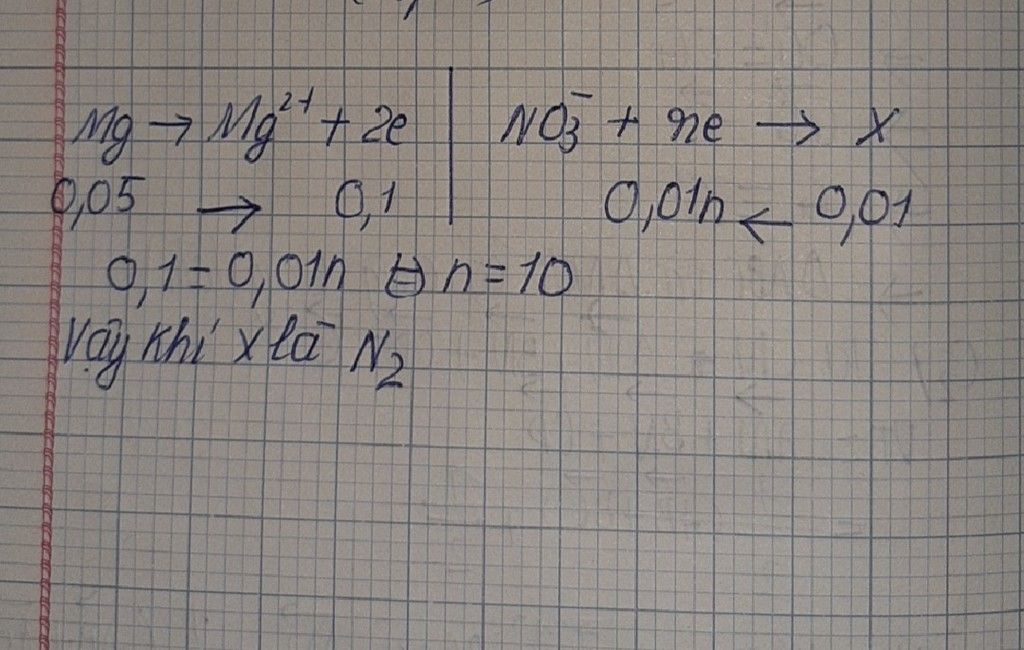 Mg → Mg²⁺ + 2e | NO₃⁻ + ne → X
0,05 → 0,1 | 0,01n ← 0,01
0,1 = 0,01n ⇔ n = 10
Vậy khí X là N₂